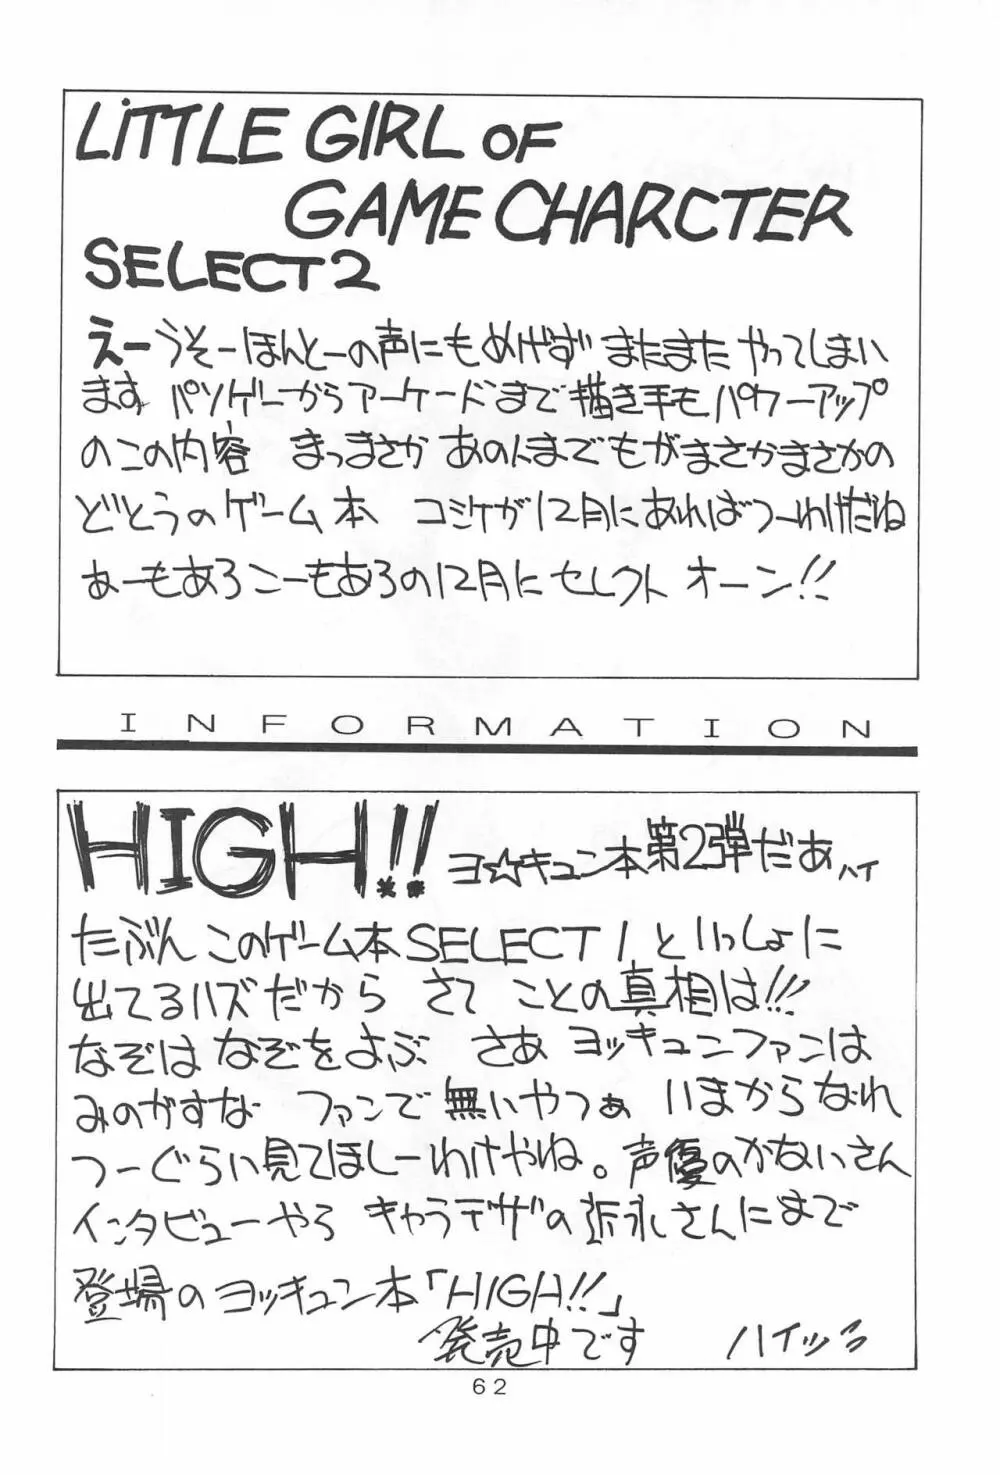 LiTTLE GIRL OF
GAME CHARCTER
SELECT2
えーうそーほんとーの声にもめげず またまた やってしまい
ます。パソゲーからアーケードまで描き手もパワーアップ
のこの内容 まっまさか あの人までもがまさかまさかの
どとうのゲーム本 コミケが12月にあればつーわけだね
あーもあろこーもあろの12月に セレクト オーン!!
INFORMATION
HIGH!! ヨ☆キュン本第2弾だぁ ハイ
たぶん このゲーム本SELECT1といっしょに
出てるハズだから さて ことの真相は!!!
なぞは なぞをよぶ さあ ヨッキュンファンは
みのがすな ファンで無いやつぁ いまからなれ
つーぐらい見てほしーわけやね。声優のかないさん
インタビューやろ キャラデザの 永さんにまで
登場のヨッキュン本「HIGH!!」
発売中です ハイッ
62